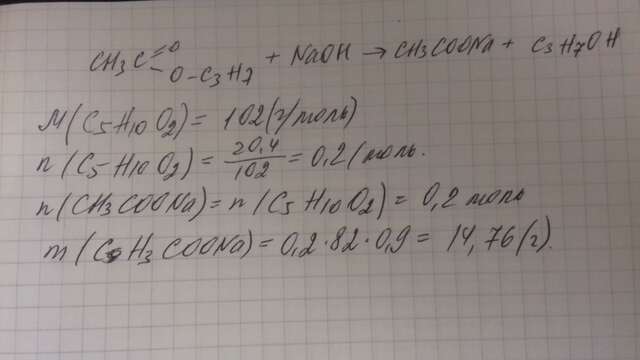 CH3C=O-O-C3H7 + NaOH → CH3COONa + C3H7OH
M(C5H10O2) = 102(г/моль)
n(C5H10O2) = 20,4/102 = 0,2(моль.
n(CH3COONa) = n(C5H10O2) = 0,2 моль
m(CH3COONa) = 0,2·82·0,9 = 14,76(г).